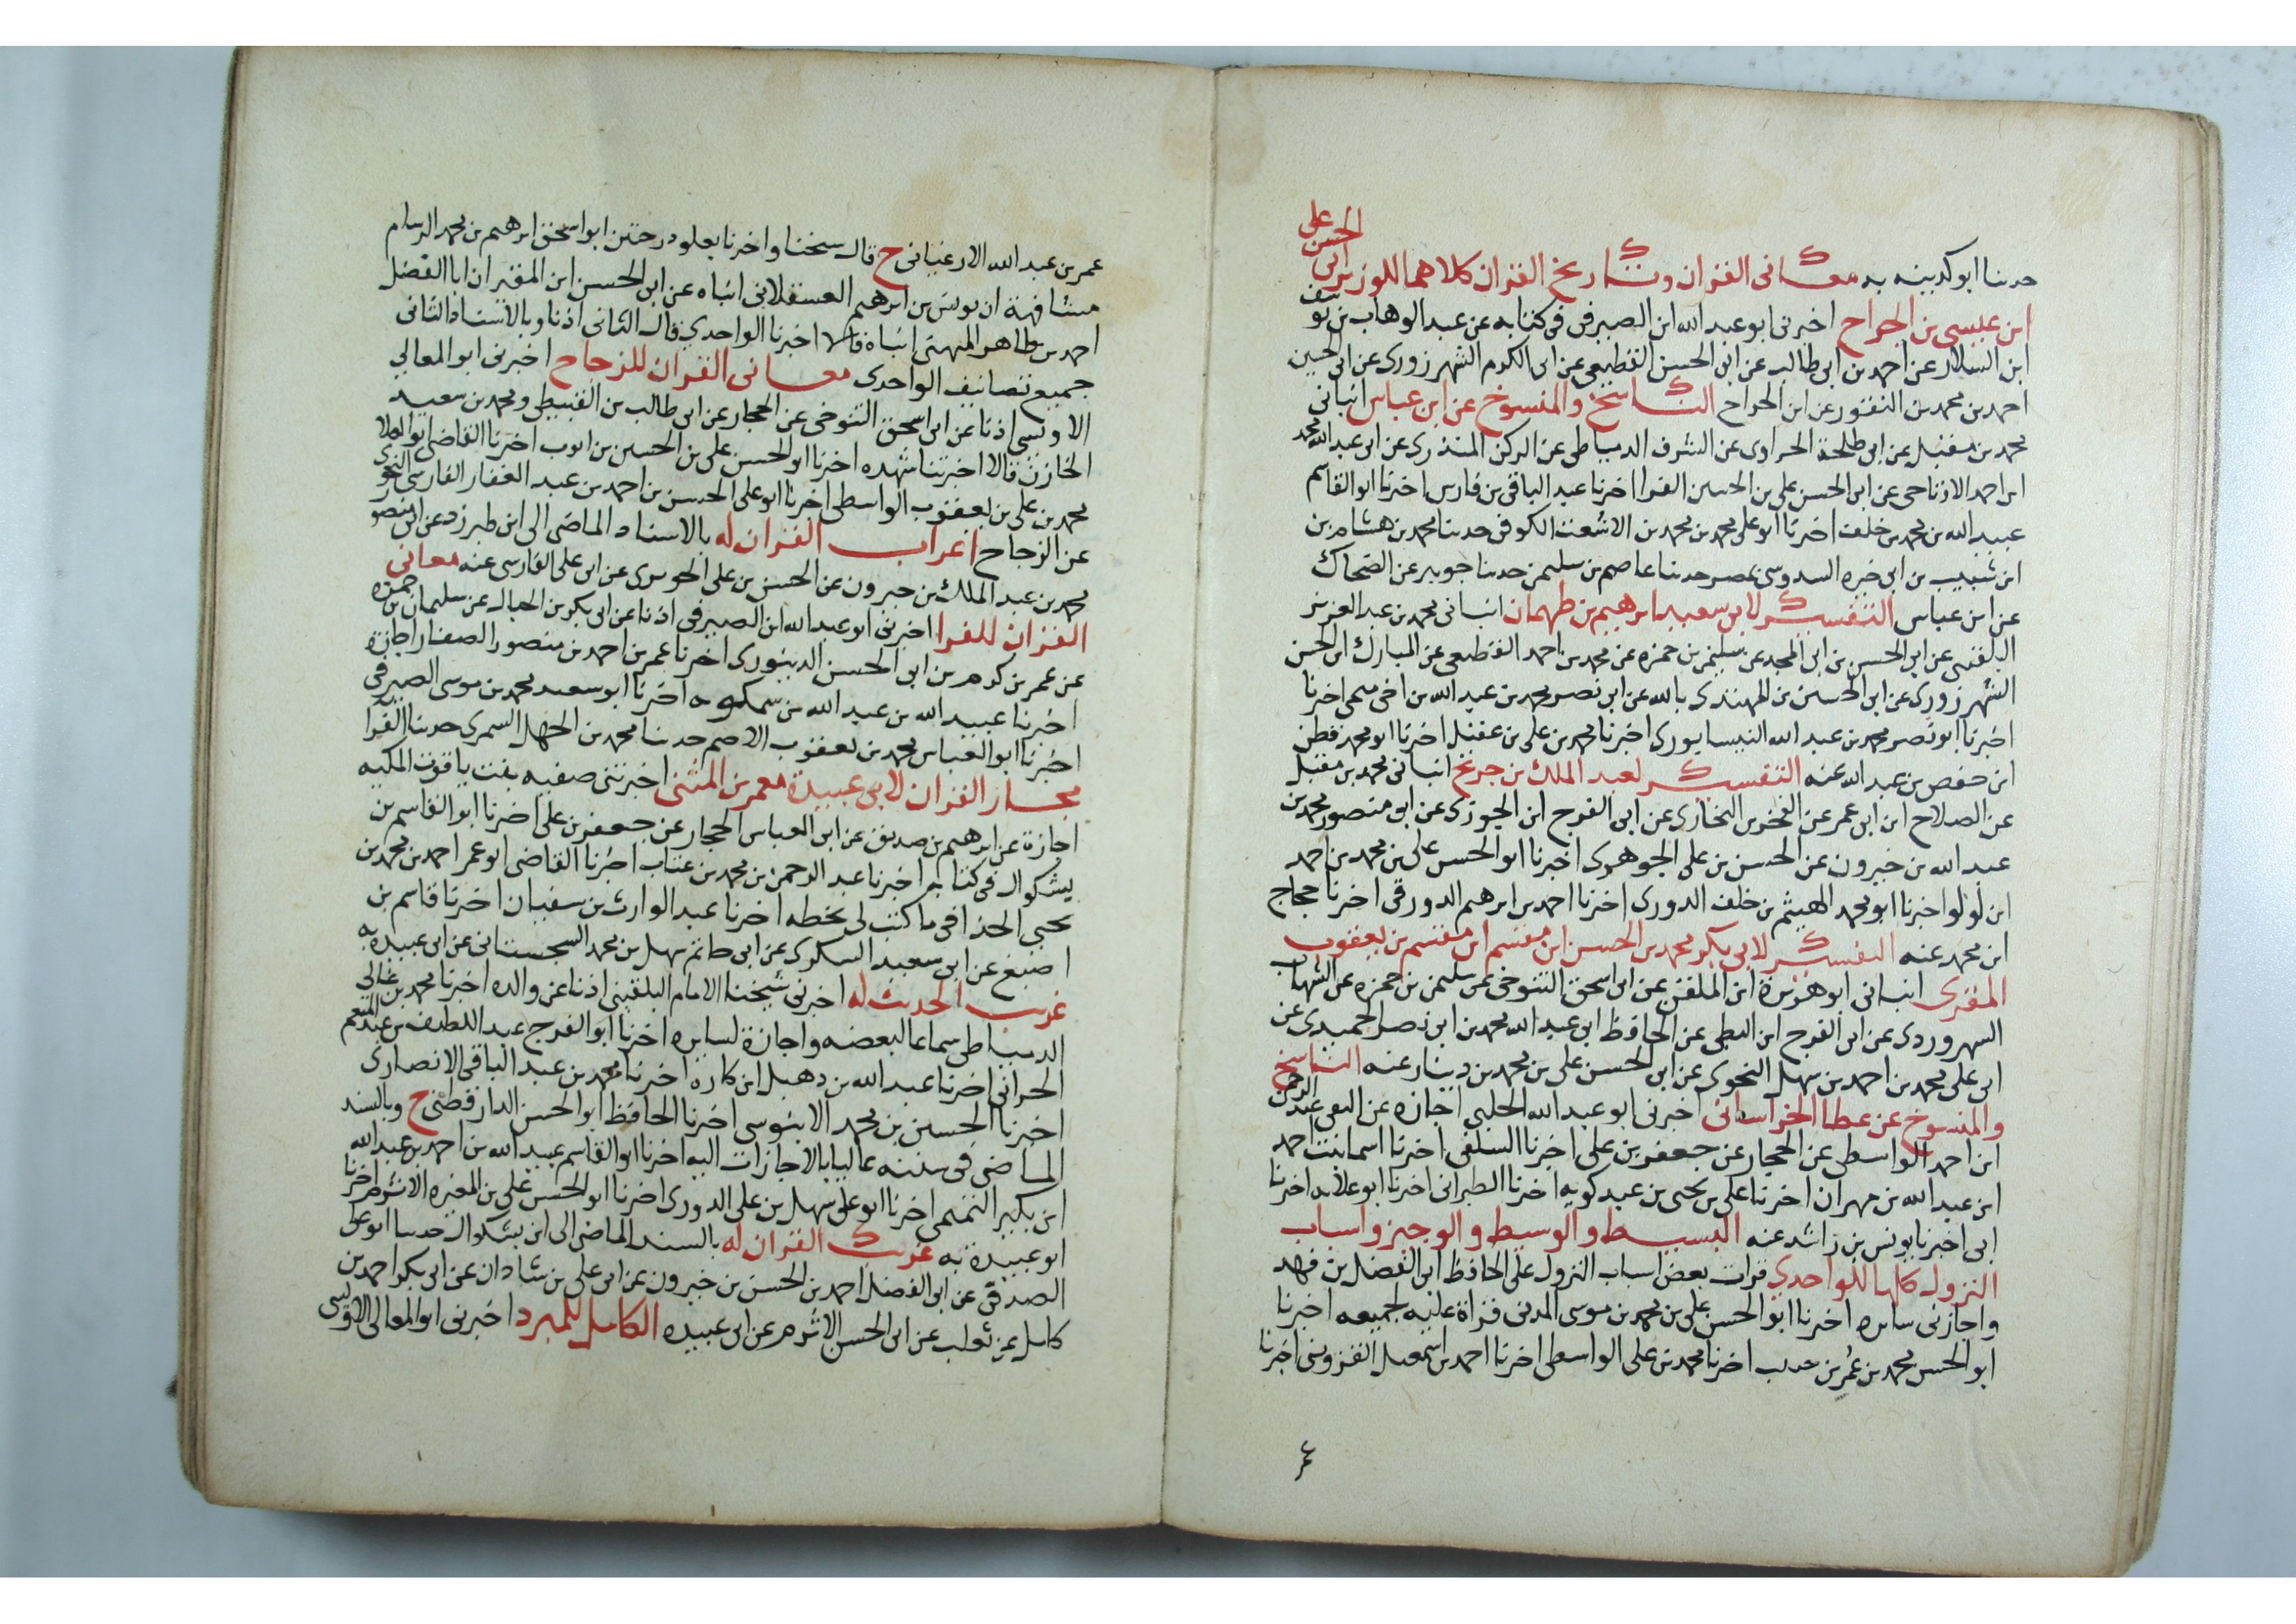 حدثنا ابو كدينه به معانى القران وتاريخ القران كلاهما للوزير ابى الحسن على
ابن عيسى بن الجراح اخبرنى ابو عبد الله ابن الصيرفى فى كتابه عن عبد الوهاب بن يوسف
ابن السلار عن احمد بن ابى طالب عن ابى الحسن القطيعى عن ابى الكرم الشهرزورى عن ابى الحسين
احمد بن محمد بن النقور عن ابن الجراح الناسخ والمنسوخ عن ابن عباس انبانى
محمد بن مقبل عن ابى طلحة الحراوى عن الشرف الدمياطى عن الزكى المنذرى عن ابى عبد الله محمد
ابن احمد الارتاحى عن ابى الحسن على بن الحسين الفرا اخبرنا عبد الباقى بن فارس اخبرنا ابو القاسم
عبيد الله بن محمد بن خلف اخبرنا ابو على محمد بن محمد بن الاشعث الكوفى حدثنا محمد بن هشام بن
ابن شبيب بن ابى خيره السدوسى بمصر حدثنا عاصم بن سليمن حدثنا جويبر عن الضحاك
عن ابن عباس التفسير لابى سعيد ابرهيم بن طهمان انبانى محمد بن عبد العزيز
البلقينى عن ابى الحسن بن ابى المجد عن سليمن بن حمزه عن محمد بن احمد القطيعى عن المبارك ابن الحسن
الشهرزورى عن ابى الحسين بن المهتدى بالله عن ابى نصر محمد بن عبد الله بن اخى ميمى اخبرنا
اخبرنا ابو نصر محمد بن عبد الله النيسابورى اخبرنا محمد بن على بن عقيل اخبرنا ابو محمد قطن
ابن حفص بن عبد الله عنه التفسير لعبد الملك بن جريج انبانى محمد بن مقبل
عن الصلاح ابن ابى عمر عن الفخر بن البخارى عن ابى الفرج ابن الجوزى عن ابى منصور محمد بن
عبد الله بن خيرون عن الحسن بن على الجوهرى اخبرنا ابو الحسن على بن محمد بن احمد
ابن لولو اخبرنا ابو محمد الهيثم بن خلف الدورى اخبرنا احمد بن ابرهيم الدورقى اخبرنا حجاج
ابن محمد عنه التفسير لابى بكر محمد بن الحسن ابن مقسم ابن مقسم بن يعقوب
المقرى انبانى ابو هريرة ابن الملقن عن ابى اسحق التنوخى عن سليمن بن حمزه عن الشهاب
السهروردى عن ابى الفرج ابن البطى عن الحافظ ابى عبد الله محمد بن ابى نصر الحميدى عن
ابى على محمد بن احمد بن سهل النحوى عن ابى الحسن على بن محمد بن دينار عنه الناسخ
والمنسوخ عن عطا الخراسانى اخبرنى ابو عبد الله الحلبى اجازه عن التقى عبد الرحمن
ابن احمد الواسطى عن الحجار عن جعفر بن على اخبرنا السلفى اخبرنا اسما بنت احمد
ابن عبد الله بن مهران اخبرنا على بن يحيى بن عبد كويه اخبرنا الطبرانى اخبرنا ابو علاثه اخبرنا
ابى اخبرنا يونس بن راشد عنه البسيط والوسيط والوجيز واسباب
النزول كلها للواحدى قرات بعض اسباب النزول على الحافظ ابى الفضل بن فهد
واجازنى سايره اخبرنا ابو الحسن على بن محمد بن موسى المدنى قراة عليه لجميعه اخبرنا
ابو الحسن محمد بن عمر بن حبيب اخبرنا محمد بن على الواسطى اخبرنا احمد بن اسمعيل القزوينى اخبرنا
عمر
عمر بن عبد الله الارغيانى ح قال شيخنا واخبرنا بعلو درجتين ابو اسحق ابرهيم بن محمد الرسام
مشافهة ان يونس بن ابرهيم العسقلانى انباه عن ابى الحسن ابن المقير ان ابا الفضل
احمد بن طاهر الميهنى انباه قالا اخبرنا الواحدى قال الثانى اذنا وبالاسناد الثانى
جميع تصانيف الواحدى معانى القران للزجاج اخبرنى ابو المعالى
الاونسى اذنا عن ابى اسحق التنوخى عن الحجار عن ابى طالب بن القبيطى ومحمد بن سعيد
الخازن قالا اخبرتنا شهده اخبرنا ابو الحسن على بن الحسين بن ايوب اخبرنا القاضى ابو العلا
محمد بن على بن يعقوب الواسطى اخبرنا ابو على الحسن بن احمد بن عبد الغفار الفارسى النحوى
عن الزجاج اعراب القران له بالاسناد الماضى الى ابن طبرزد عن ابى منصور
محمد بن عبد الملك بن خيرون عن الحسن بن على الجوهرى عن ابى على الفارسى عنه معانى
القران للفرا اخبرنى ابو عبد الله ابن الصيرفى اذنا عن ابى بكر بن الحبال عن سليمان بن حمزه
عن عمر بن كرم بن ابى الحسن الدينورى اخبرنا عمر بن احمد بن منصور الصفار اجازة
اخبرنا عبيد الله بن عبد الله بن سمكويه اخبرنا ابو سعيد محمد بن موسى الصيرفى
اخبرنا ابو العباس محمد بن يعقوب الاصم حدثنا محمد بن الجهل السمرى حدثنا الفرا به
مجاز القران لابى عبيدة معمر بن المثنى اخبرتنى صفيه بنت ياقوت المكيه
اجازة عن ابرهيم بن صديق عن ابى العباس الحجار عن جعفر بن على اخبرنا ابو القاسم بن
بشكوال فى كتابه اخبرنا عبد الرحمن بن محمد بن عتاب اخبرنا القاضى ابو عمر احمد بن محمد بن
يحيى الحذا فى ما كتب لى بخطه اخبرنا عبد الوارث بن سفيان اخبرنا قاسم بن
اصبغ عن ابى سعيد السكرى عن ابى حاتم سهل بن محمد السجستانى عن ابى عبيدة به
غريب الحديث له اخبرنى شيخنا الامام البلقينى اذنا عن والده اخبرنا محمد بن غالى
الدمياطى سماعا لبعضه واجازة لسايره اخبرنا ابو الفرج عبد اللطيف بن عبد المنعم
الحرانى اخبرنا عبد الله بن دهبل ابن كاره اخبرنا محمد بن عبد الباقى الانصارى
اخبرنا الحسين بن محمد الابنوسى اخبرنا الحافظ ابو الحسن الدارقطنى ح وبالسند
الماضى فى سننه عاليا بالاجازات اليه اخبرنا ابو القاسم عبيد الله بن احمد بن عبد الله
ابن بكير التميمى اخبرنا ابو على سهل بن على الدورى اخبرنا ابو الحسن على بن المغيره الاثرم اخبرنا
ابو عبيدة به غريب القران له بالسند الماضى الى ابن بشكوال حدثنا ابو على
الصدفى عن ابى الفضل احمد بن الحسن بن خيرون عن ابى على بن شاذان عن ابى بكر احمد بن
كامل عن ثعلب عن ابى الحسن الاثرم عن ابى عبيده الكامل للمبرد اخبرنى ابو المعالى الاونسى